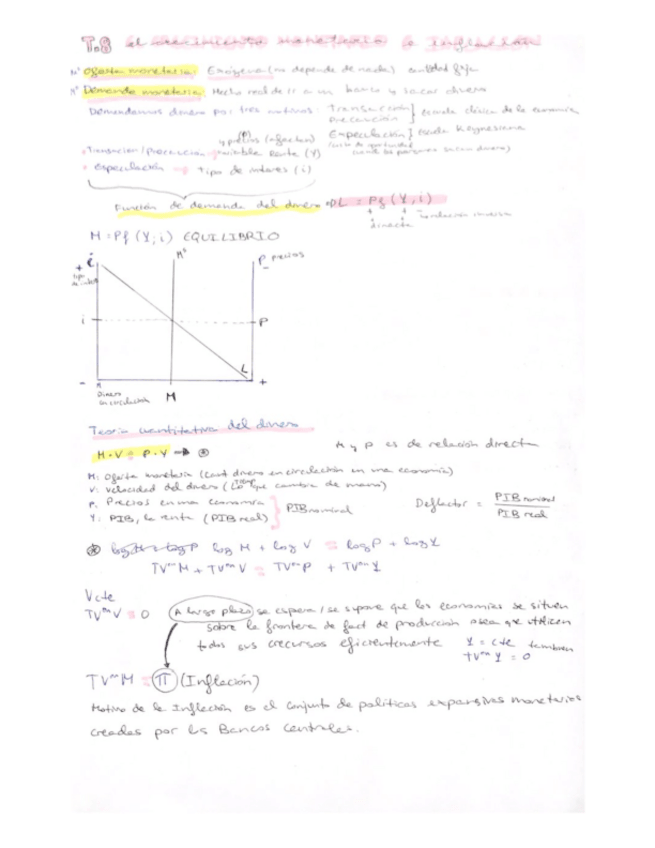 T.8 el crecimiento monetario e inflación
Mˢ Oferta monetaria: Exógena (no depende de nada) cantidad fija
Mᵈ Demanda monetaria: Hecho real de ir a un banco y sacar dinero
Demandamos dinero por tres motivos: Transacción } escuela clásica de la economía
Precaución
Especulación } escuela Keynesiana
(P)
y precios (afectan)
• Transacción/Precaución → variable Renta (Y)
• Especulación → tipo de interés (i)
Función de demanda del dinero L = Pf (Y, i)
directa relación inversa
M = Pf (Y, i) EQUILIBRIO
+ i Mˢ P precios
tipo de interés
i P
L
- +
Dinero en circulación M
Teoría cuantitativa del dinero
M · V = P · Y → *
M y P es de relación directa
M: Oferta monetaria (cant dinero en circulación en una economía)
V: Velocidad del dinero (que cambia de mano)
P: Precios en una economía
Y: PIB, la renta (PIB real) } PIB nominal
Deflactor = PIB nominal / PIB real
* log M + log V = log P + log Y
TVᵐ M + TVᵐ V = TVᵐ P + TVᵐ Y
V cte
TVᵐ V = 0
A largo plazo se espera / se supone que las economías se sitúen
sobre la frontera de fact de producción o sea que utilizen
todos sus crecursos eficientemente Y = cte también
TVᵐ Y = 0
TVᵐ M = π (Inflación)
Motivo de la Inflación es el conjunto de políticas expansivas monetarias
creadas por los Bancos Centrales.